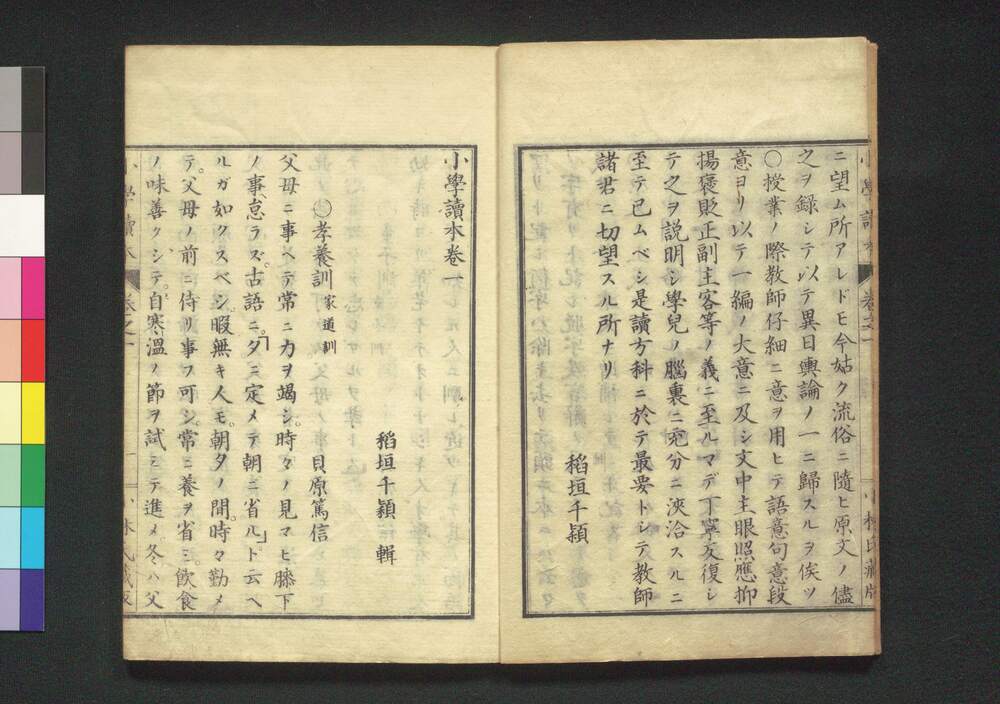 ニ望ム所アレドモ今姑ク流俗ニ隨ヒ原文ノ儘
之ヲ録シテ以テ異日輿論ノ一ニ歸スルヲ俟ツ
○授業ノ際教師仔細ニ意ヲ用ヒテ語意句意段
意ヨリ以テ一編ノ大意ニ及シ文中主眼照應抑
揚褒貶正副主客等ノ義ニ至ルマデ丁寧反復シ
テ之ヲ説明シ學兒ノ腦裏ニ充分ニ浹洽スルニ
至テ已ムベシ是讀方科ニ於テ最要トシテ教師
諸君ニ切望スル所ナリ
稻垣千頴
小學讀本卷一
稻垣千頴 輯
○孝養訓 家道訓 貝原篤信
父母ニ事ヘテ常ニ力ヲ竭シ。時々ノ見マヒ膝下
ノ事、怠ラズ。古語ニ。「夕ニ定メテ朝ニ省ル」ト云ヘ
ルガ如クスベシ。暇無キ人モ。朝夕ノ間。時々勤メ
テ。父母ノ前ニ侍リ事フ可シ。常ニ養ヲ省ミ。飲食
ノ味善クシテ。自寒溫ノ節ヲ試ミテ進メ。冬ハ父
小學讀本
卷之一
小林氏藏版